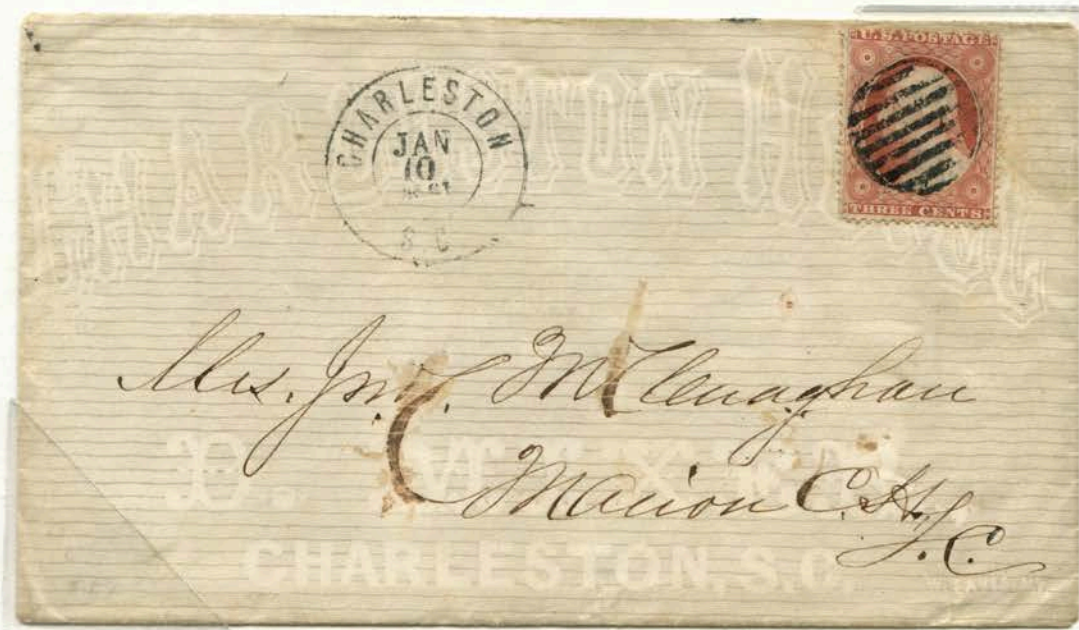 U.S. POSTAGE
THREE CENTS
CHARLESTON
JAN
10
S C
CHARLESTON
Mrs. Jno. C. McClenaghan
Marion C.H.
S.C.
D.
CHARLESTON, S.C.